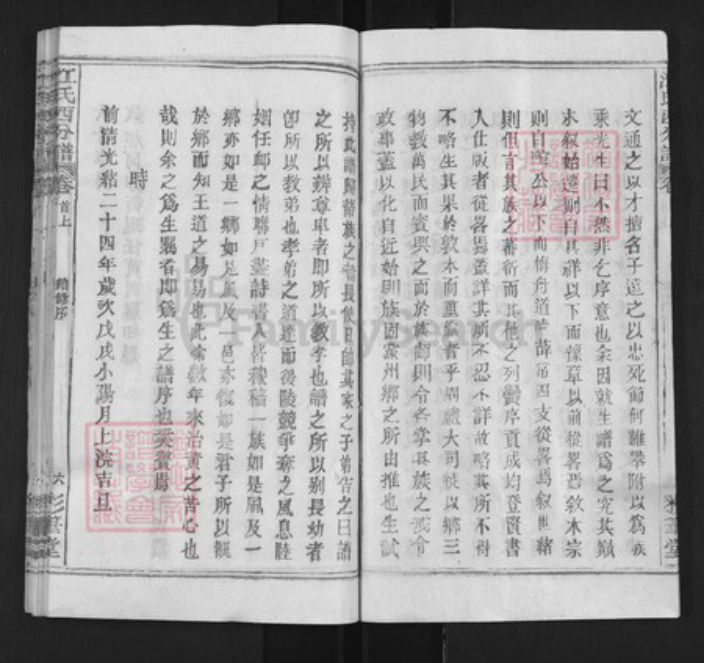 文通之以才擅名子遠之以忠死節何難攀附以爲族
乘光生曰不然非乞序意也余因就生譜爲之究其顛
末叙始遷則自具祥以下而豫章以前從畧焉敘本宗
則自 公以下而梅舟道 薛 四支從畧焉叙世緒
則但言其族之蕃衍而其他之列黌序貢成均登賢書
入仕版者從畧焉蓋詳其所不忍不詳故略其所不得
不略生其果於敦本而重 者乎周禮大司徒以鄉三
物教萬民而賓興之而於族師則令各掌其族之戒令
政事蓋以化自近始則族固黨州鄉之所由推也生試
持此譜歸偕族之 長使日師其家之子弟告之曰譜
之所以辨尊卑者即所以教孝也譜之所以别長幼者
卽所以教弟也孝弟之道達而後陵競爭奪之風息睦
婣任卹之情聯戸盡詩書人皆稼穡一族如是風及一
鄉亦如是一鄉如是風及一邑亦復如是君子所以觀
於鄉而知王道之易易也此余數年來治 之苦心也
哉則余之爲生囑者即爲生之譜序也奚贅焉
時
前清光緒二十四年歲次戊戌小陽月上浣吉旦
江氏西分譜 卷首上 續修序 六 彭 堂